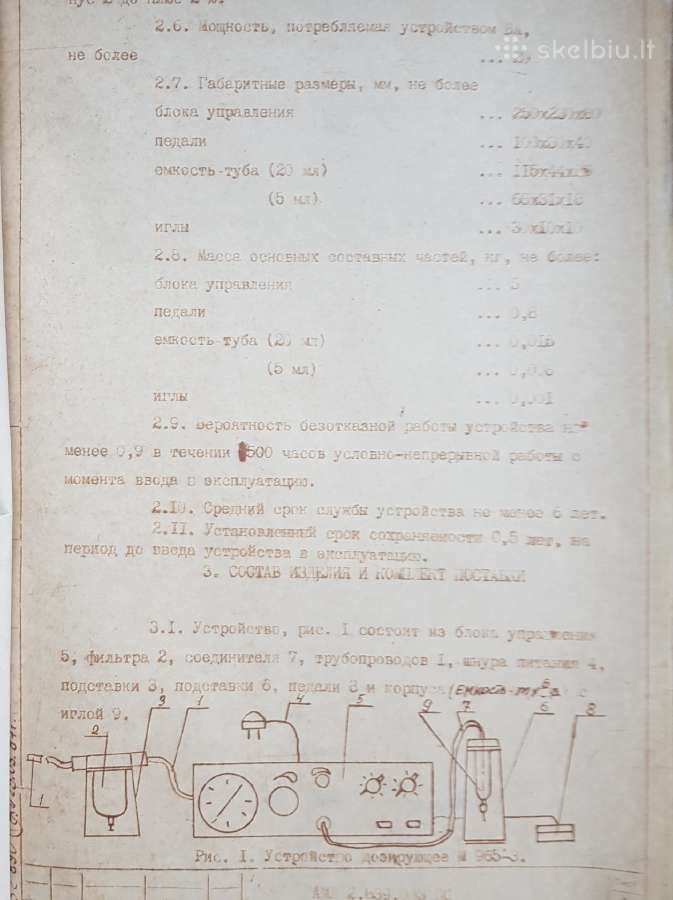 skelbiu.lt
2.6. Мощность, потребляемая устройством Ва,
не более ...
2.7. Габаритные размеры, мм, не более
блока управления ...
педали ...
емкость-туба (20 мл) ...
(5 мл) ...
иглы ...
2.8. Масса основных составных частей, кг, не более:
блока управления ... 5
педали ... 0,8
емкость-туба (20 мл) ... 0,015
(5 мл) ...
иглы ... 0,001
2.9. Вероятность безотказной работы устройства не
менее 0,9 в течении 500 часов условно-непрерывной работы с
момента ввода в эксплуатацию.
2.10. Средний срок службы устройства не менее 6 лет.
2.11. Установленный срок сохраняемости 0,5 лет, на
период до ввода устройства в эксплуатацию.
3. СОСТАВ ИЗДЕЛИЯ И КОМПЛЕКТ ПОСТАВКИ
3.1. Устройство, рис. 1 состоит из блока управления
5, фильтра 2, соединителя 7, трубопроводов 1, шнура питания 4,
подставки 3, подставки 6, педали 8 и корпуса (Емкость-туба) с
иглой 9.
2 3 1 4 5 9 7 6 8
1
Рис. 1. Устройство дозирующее М 965-3.